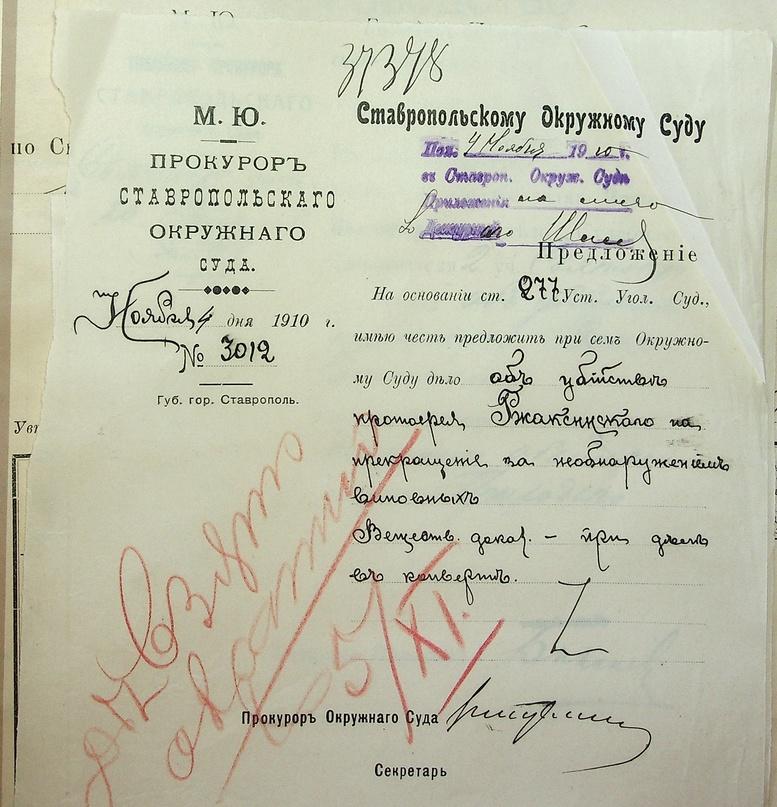 37378
М. Ю.
ПРОКУРОРЪ
СТАВРОПОЛЬСКАГО
ОКРУЖНАГО
СУДА.
Ноября 4 дня 1910 г.
№ 3012
Губ. гор. Ставрополь.
Ставропольскому Окружному Суду
Пол. 4 Ноября 1910 г.
въ Ставроп. Окруж. Судъ
Приложенія на
Предложеніе
На основаніи ст. 277 Уст. Угол. Суд.,
имѣю честь предложить при семъ Окружно-
му Суду дѣло объ убійствѣ
протоіерея на
прекращеніе за необнаруженіемъ
виновныхъ
Веществ. доказ. - при дѣлѣ
въ конвертѣ.
дѣло взято
обратно
5/XI.
Прокуроръ Окружнаго Суда
Секретарь